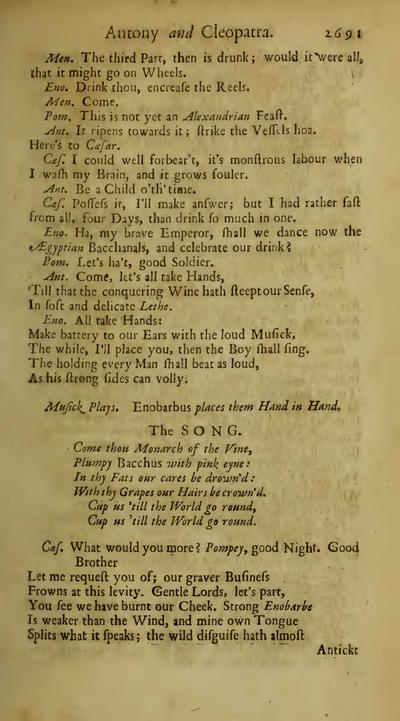 Antony and Cleopatra. 2691
Men. The third Part, then is drunk; would it were all,
that it might go on Wheels.
Eno. Drink thou, encreaſe the Reels.
Men. Come.
Pom. This is not yet an Alexandrian Feaſt.
Ant. It ripens towards it; ſtrike the Veſſels hoa.
Here's to Cæſar.
Cæſ. I could well forbear't, it's monſtrous labour when
I waſh my Brain, and it grows fouler.
Ant. Be a Child o'th' time.
Cæſ. Poſſeſs it, I'll make anſwer; but I had rather faſt
from all, four Days, than drink ſo much in one.
Eno. Ha, my brave Emperor, ſhall we dance now the
Ægyptian Bacchanals, and celebrate our drink?
Pom. Let's ha't, good Soldier.
Ant. Come, let's all take Hands,
'Till that the conquering Wine hath ſteept our Senſe,
In ſoft and delicate Lethe.
Eno. All take Hands:
Make battery to our Ears with the loud Muſick,
The while, I'll place you, then the Boy ſhall ſing.
The holding every Man ſhall beat as loud,
As his ſtrong ſides can volly.
Muſick Plays. Enobarbus places them Hand in Hand.
The SONG.
Come thou Monarch of the Vine,
Plumpy Bacchus with pink eyne:
In thy Fats our cares be drown'd:
With thy Grapes our Hairs be crown'd.
Cup us 'till the World go round,
Cup us 'till the World go round.
Cæſ. What would you more? Pompey, good Night. Good
Brother
Let me requeſt you of; our graver Buſineſs
Frowns at this levity. Gentle Lords, let's part,
You ſee we have burnt our Cheek. Strong Enobarbe
Is weaker than the Wind, and mine own Tongue
Splits what it ſpeaks; the wild diſguiſe hath almoſt
Antickt